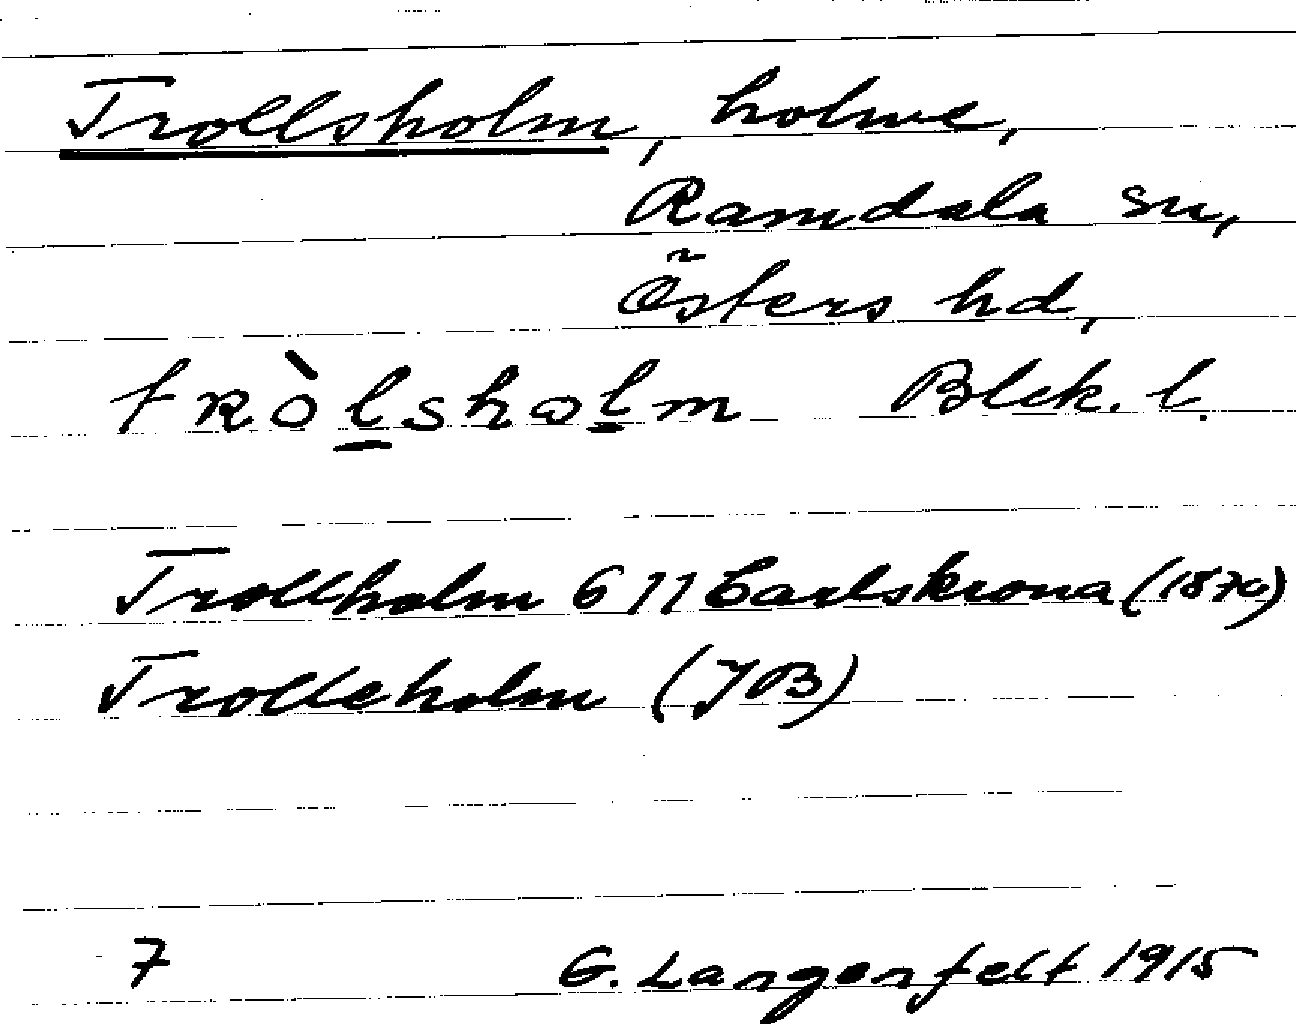 Trollsholm, holme,
Ramdala sn,
Östers hd,
tròl̲shol̲m Blek. l.
Trollholm G 11 Carlskrona (1870)
Trolleholm (JB)
7 G. Langenfelt 1915